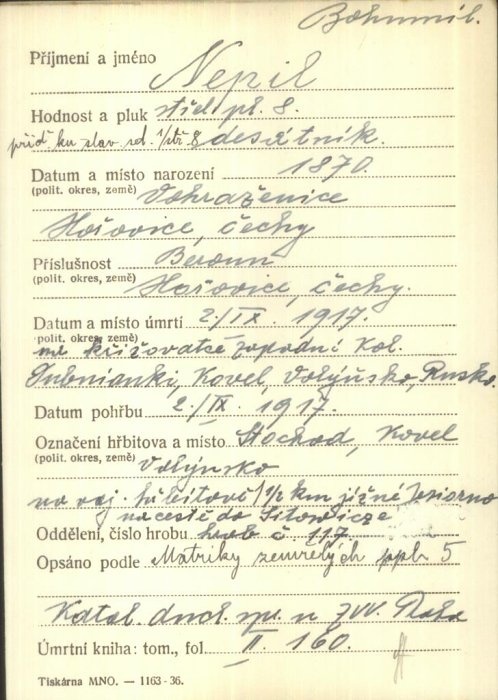 Bohumil.
Příjmení a jméno Nepil
Hodnost a pluk střel. pl. 8.
příd. ku slav. desátník.
Datum a místo narození 1870.
(polit. okres, země) Vohrazenice
Hořovice, Čechy
Příslušnost Beroun
(polit. okres, země) Hořovice, Čechy.
Datum a místo úmrtí 2./IX. 1917.
(polit. okres, země)
na křižovatce západní Kol.
Dubnianki, Kovel, Volyňsko, Rusko.
Datum pohřbu 2./IX. 1917.
Označení hřbitova a místo Stochod, Kovel
(polit. okres, země) Volyňsko
na voj. hřbitově 1 1/2 km jižně Jesiorno
na cestě do Sitowicze
Oddělení, číslo hrobu hrob č. 117.
Opsáno podle Matriky zemřelých ppl. 5
Katal. duch. spr. n ZVV. Praha
Úmrtní kniha: tom., fol. II. 160.
Tiskárna MNO. — 1163-36.